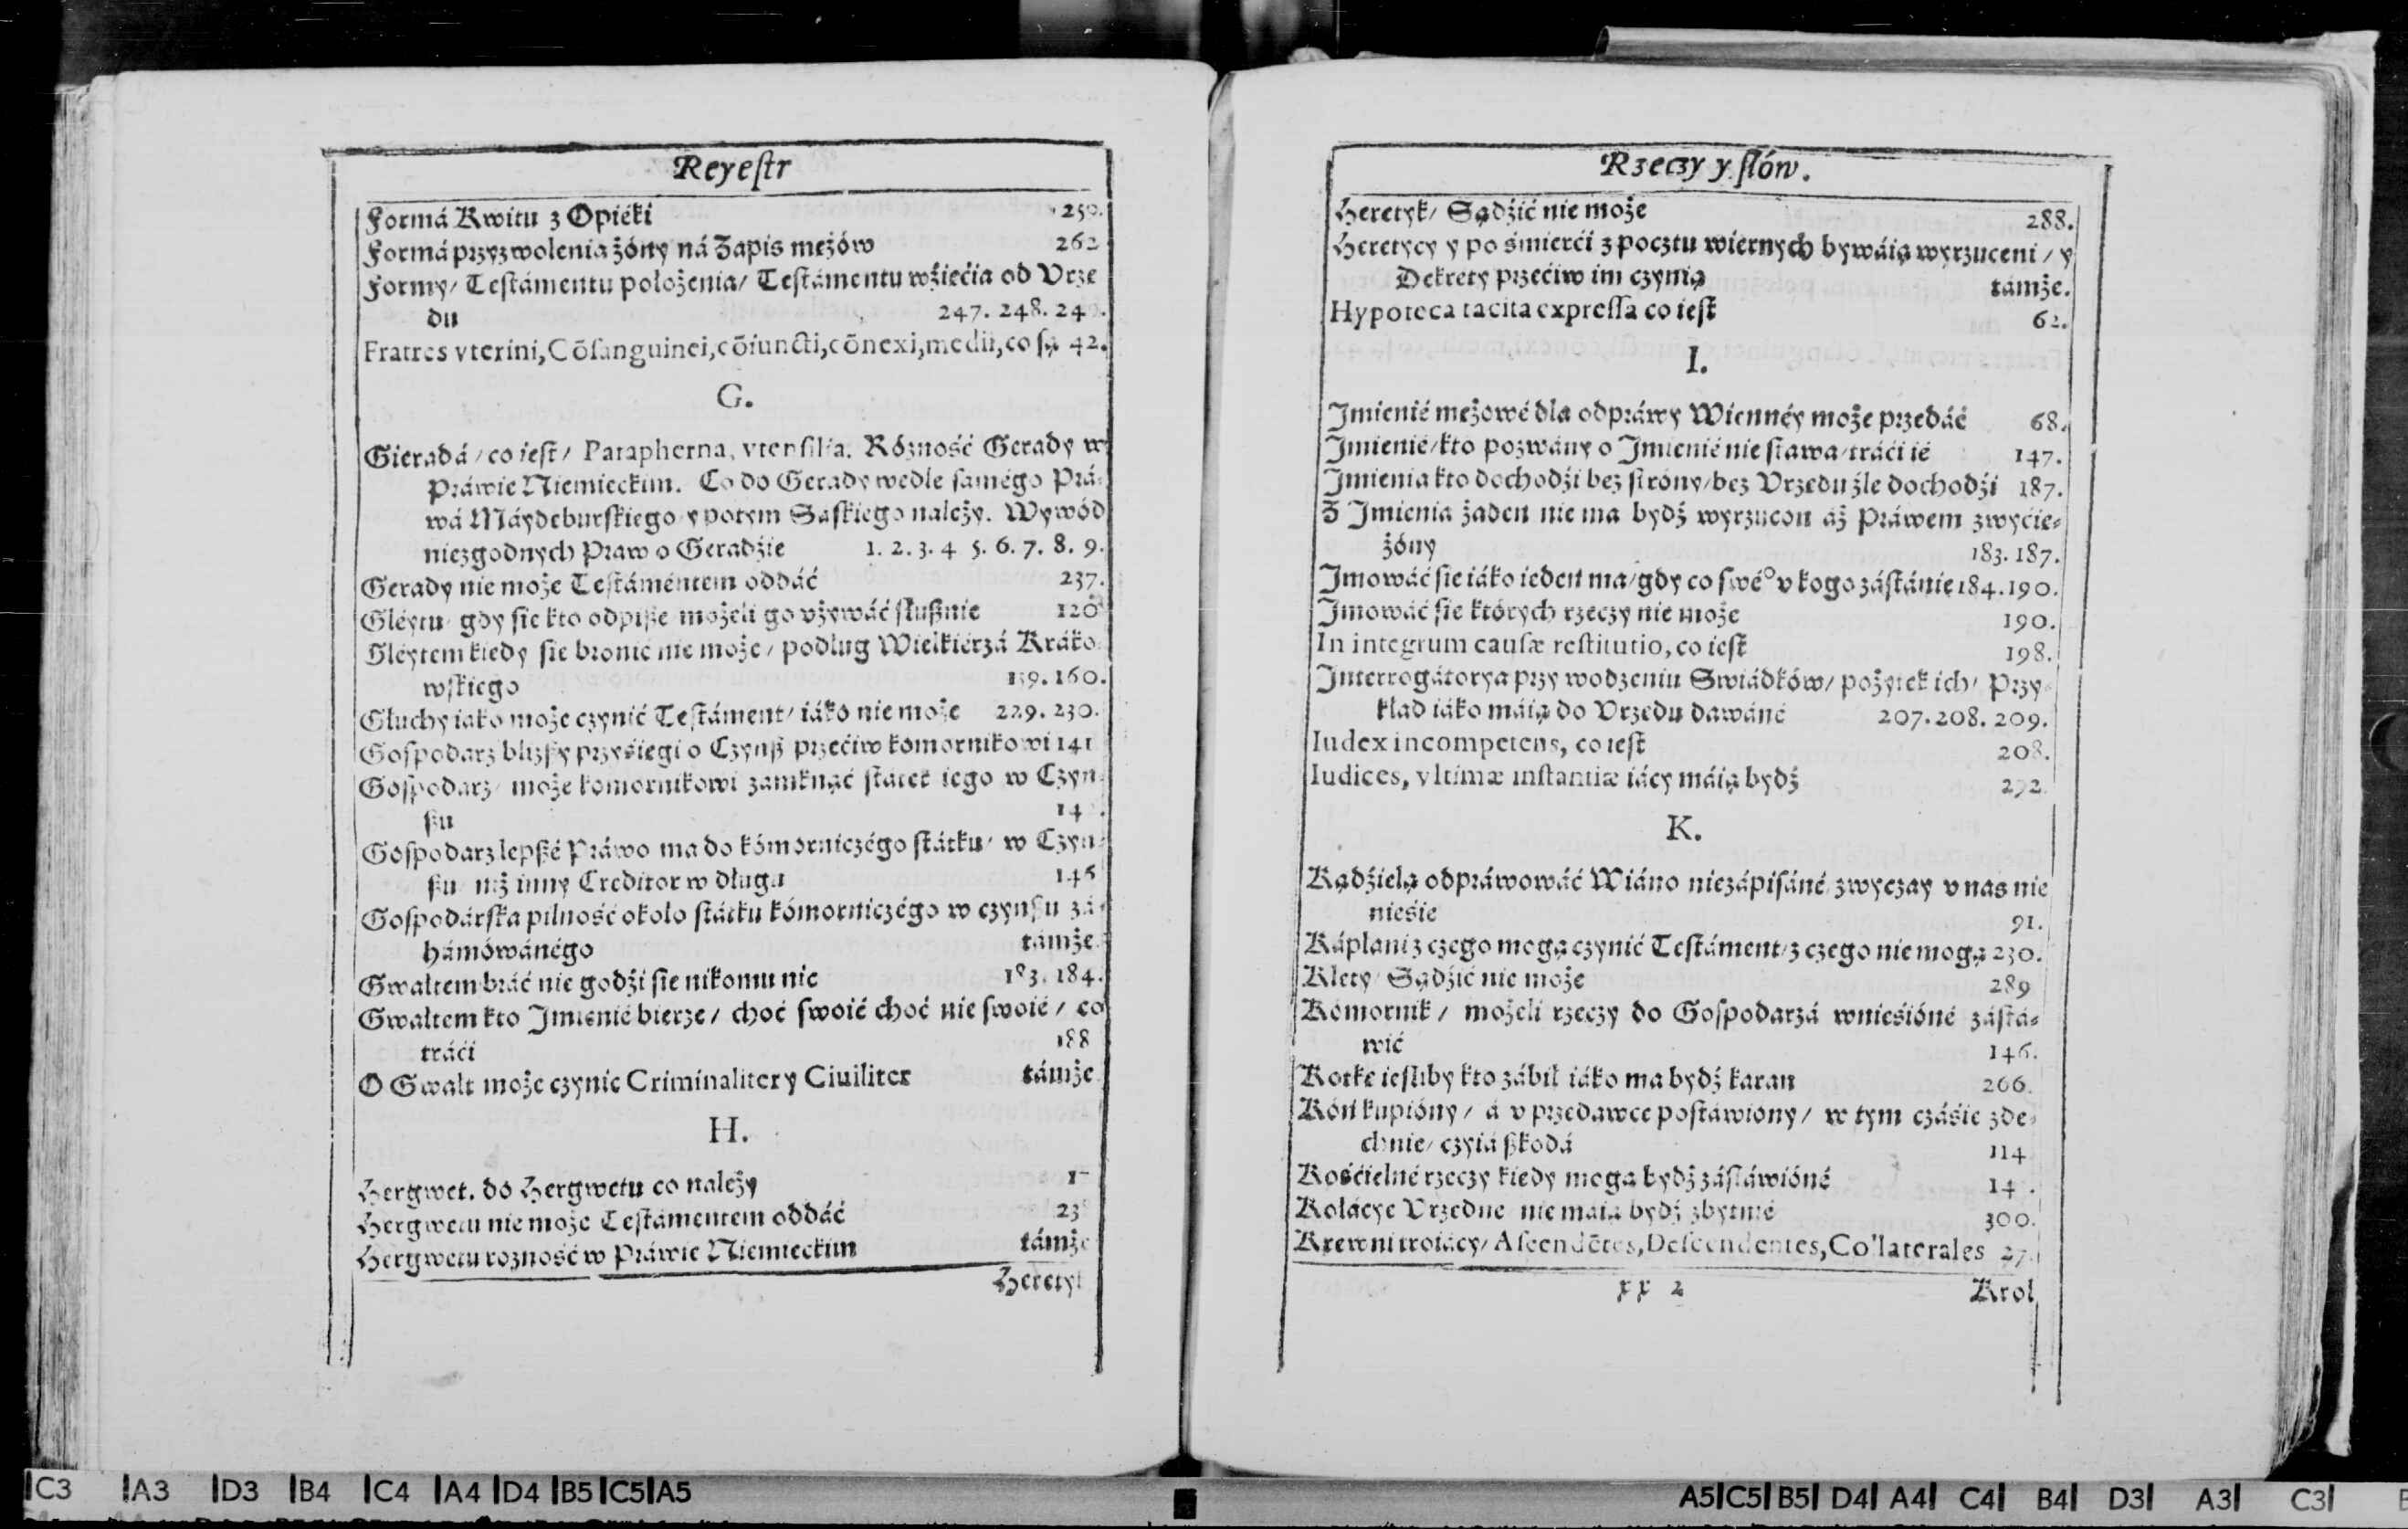 Reyeſtr
Formá Kwitu z Opiéki 250.
Formá przyzwolenia żóny ná Zapis mężów 262
Formy/ Teſtámentu położenia/ Teſtámentu wźięćia od Vrzę
du 247. 248. 24
Fratres vterini, Cõſanguinei, cõiuncti, cõnexi, medii, co ſą 42.
G.
Gieradá/ co ieſt/ Parapherna, vtenſilia. Rózność Gerady w
Práwie Niemieckim. Co do Gerady wedle ſamégo Prá-
wá Máydeburſkiego y potym Saſkiego należy. Wywód
niezgodnych Praw o Geradźie 1. 2. 3. 4 5. 6. 7. 8. 9.
Gerady nie może Teſtáméntem oddáć 237.
Gléytu gdy ſie kto odpiße możeli go vżywáć ſłußnie 120
Gléytem kiedy ſie bronić nie może/ podług Wielkiérzá Kráko
wſkiego 159. 160.
Głuchy iáko może czynić Teſtáment/ iáko nie może 229. 230.
Goſpodarz bliżßy przyśięgi o Czynß przećiw komornikowi 141
Goſpodarz/ może komornikowi zamknąć ſtátek iego w Czyn
ßu 14
Goſpodarz lepßé Práwo ma do kómorniczégo ſtátku/ w Czyn-
ßu niż inny Creditor w długu 146
Goſpodárſka pilność około ſtátku kómorniczégo w czynßu zá-
hámówánégo támże
Gwałtem bráć nie godźi ſie nikomu nic 183. 184.
Gwałtem kto Imienié bierze/ choć ſwoié choć nie ſwoié/ co
tráći 188
O Gwałt może czynic Criminaliter y Ciuiliter támże
H.
Hergwet. do Hergwetu co należy 1
Hergwetu nie może Teſtámentem oddáć 23
Hergwetu rozność w Práwie Niemieckim támże
Heretyk
Rzeczy y ſłów.
Heretyk/ Sądźić nie może 288.
Heretycy y po śmierći z pocztu wiernych bywáią wyrzuceni/ y
Dekrety przećiw im czynią támże.
Hypoteca tacita expreſſa co ieſt 62.
I.
Imienié mężowé dla odpráwy Wiennéy może przedáć 68.
Imienié/ kto pozwány o Imienié nie ſtawa/ tráći ié 147.
Imienia kto dochodźi bez ſtróny/ bez Vrzędu źle dochodźi 187.
Z Imienia żaden nie ma bydź wyrzucon áż Práwem zwyćię-
żóny 183. 187.
Imowáć ſie iáko ieden ma/ gdy co ſwé° v kogo záſtánie 184. 190.
Imowáć ſie których rzeczy nie może 190.
In integrum cauſæ reſtitutio, co ieſt 198.
Interrogátorya przy wodzeniu Swiádków/ pożytek ich/ Przy-
kład iáko máią do Vrzędu dawáné 207. 208. 209.
Iudex incompetens, co ieſt 208.
Iudices, vltimæ inſtantiæ iácy máią bydź 292
K.
Kądźielą odpráwowáć Wiáno niezápiſáné zwyczay v nas nie
nieśie 91.
Káplani z czego mogą czynić Teſtáment/ z czego nie mogą 230.
Klęty/ Sądźić nie może 289
Kómornik/ możeli rzeczy do Goſpodarzá wnieśióné záſtá-
wić 146.
Kotkę ieſliby kto zábił iáko ma bydź karan 266.
Kóń kupióny/ á v przedawce poſtáwióny/ w tym czáśie zde-
chnie/ czyiá ßkodá 114
Kośćielné rzeczy kiedy mogą bydź záſtáwióné 14 .
Kolácye Vrzędne nie máią bydź zbytnié 300.
Krewni troiácy/ Aſcendẽtes, Deſcendentes, Collaterales 27.
xx 2
Krol
C3 A3 D3 B4 C4 A4 D4 B5 C5 A5
A5 C5 B5 D4 A4 C4 B4 D3 A3 C3